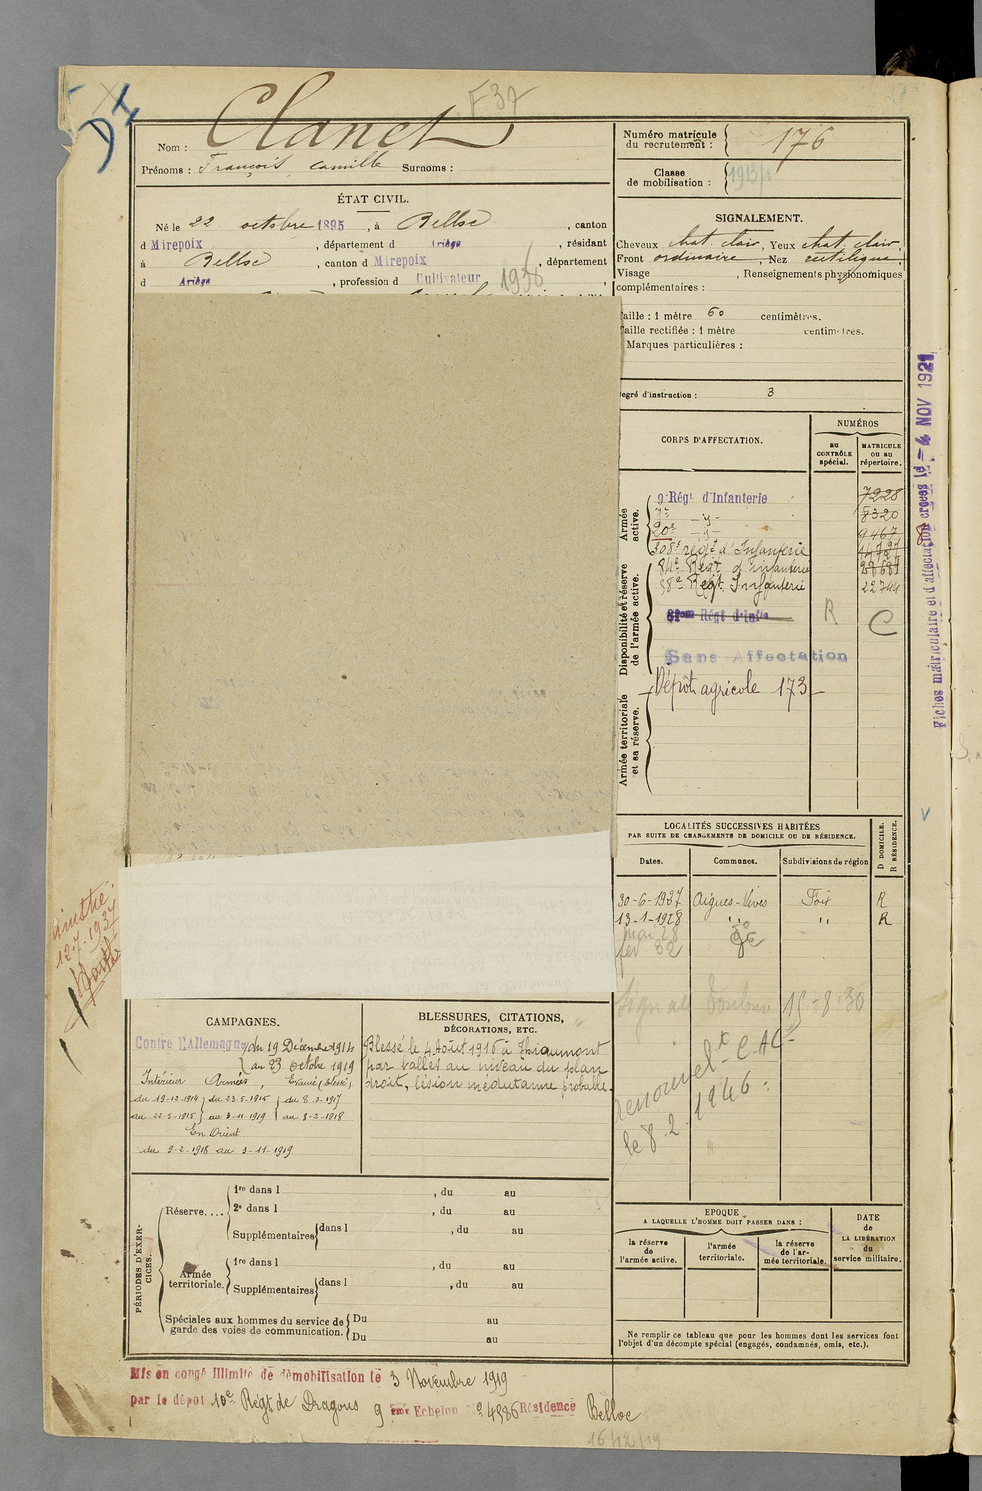 F 37
DI
Nom : Clanet
Prénoms : François Camille Surnoms :
ÉTAT CIVIL.
Né le 22 octobre 1895, à Belloc, canton
d Mirepoix, département d Ariège, résidant
à Belloc, canton d Mirepoix, département
d Ariège, profession d Cultivateur 1936
Numéro matricule
du recrutement : 176
Classe
de mobilisation : 1913/1
SIGNALEMENT.
Cheveux chat. clair, Yeux chat. clair,
Front ordinaire, Nez rectiligne,
Visage , Renseignements physionomiques
complémentaires :
Taille : 1 mètre 60 centimètres.
Taille rectifiée : 1 mètre centimètres.
Marques particulières :
Degré d'instruction : 3
CORPS D'AFFECTATION.
NUMÉROS
au
CONTRÔLE
spécial.
MATRICULE
ou au
répertoire.
Armée
active.
9e Régt d'Infanterie 7228
7e -y- 8320
20e -y- 9467
308e régt d'Infanterie
Disponibilité et réserve
de l'armée active.
84e Régt d'Infanterie
58e Régt Infanterie 22744
81eme Régt d'Infie R C
Sans Affectation
Armée territoriale
et sa réserve.
Dépôt agricole 173
Fiches matriculaire et d'affectation créées le - 4 NOV 1921
LOCALITÉS SUCCESSIVES HABITÉES
PAR SUITE DE CHANGEMENTS DE DOMICILE OU DE RÉSIDENCE.
Dates. Communes. Subdivisions de région
D DOMICILE.
R RÉSIDENCE.
30-6-1927 Aigues-Vives Foix R
13-1-1928 " " R
mai 28
fev 32
15-8-30
Renouvel t C.A.C
le 8.2.1946
12-7-1937
CAMPAGNES.
Contre l'Allemagne du 19 Décembre 1914
au 23 octobre 1919
Intérieur Armées, Evacué (blessé)
du 19-12-1914 du 23-5-1915 du 8-2-1917
au 22-5-1915 au 3-11-1919 au 8-2-1918
En Orient
du 9-2-1918 au 3-11-1919
BLESSURES, CITATIONS,
DÉCORATIONS, ETC.
Blessé le 4 Août 1916 à Thiaumont
par balles au niveau du plan
droit, lésion médutanne probable.
PÉRIODES D'EXERCICES.
Réserve....
1re dans l , du au
2e dans l , du au
Supplémentaires dans l , du au
Armée
territoriale.
1re dans l , du au
Supplémentaires dans l , du au
Spéciales aux hommes du service de
garde des voies de communication.
Du au
Du au
EPOQUE
A LAQUELLE L'HOMME DOIT PASSER DANS :
la réserve
de
l'armée active.
l'armée
territoriale.
la réserve
de l'ar-
mée territoriale.
DATE
de
LA LIBÉRATION
du
service militaire.
Ne remplir ce tableau que pour les hommes dont les services font
l'objet d'un décompte spécial (engagés, condamnés, omis, etc.).
Mis en congé illimité de démobilisation le 3 Novembre 1919
par le dépôt 10e Régt de Dragons 9 eme Echelon no 4986 Résidence Belloc
16/12/19